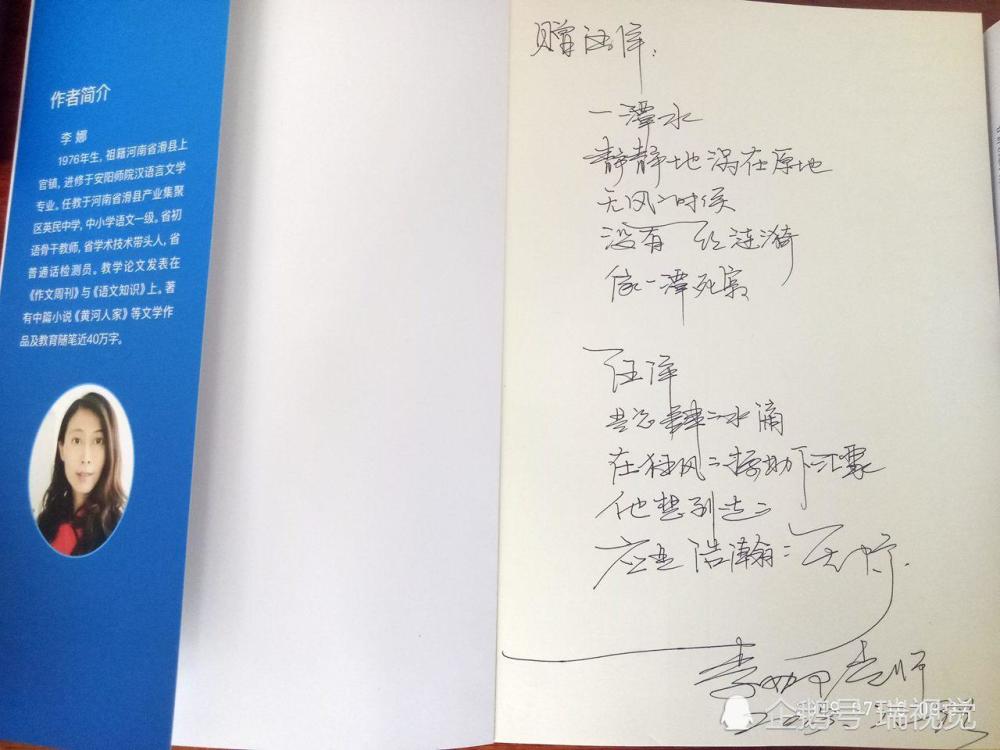 作者简介
李 娜
1976年生，祖籍河南省滑县上
官镇，进修于安阳师院汉语言文学
专业。任教于河南省滑县产业集聚
区英民中学，中小学语文一级。省初
语骨干教师，省学术技术带头人，省
普通话检测员。教学论文发表在
《作文周刊》与《语文知识》上。著
有中篇小说《黄河人家》等文学作
品及教育随笔近40万字。
赠
一潭水
静静地涡在原地
无风的时候
没有一丝涟漪
像一潭死寂
汪洋
是恣肆的水滴
在狂风的撩助下
他想到达的
应是浩瀚的天际.
李娜老师
企鹅号 瑞视觉